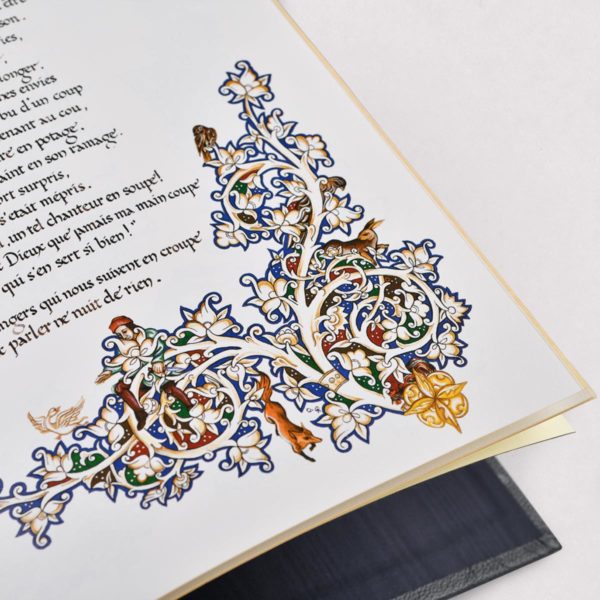 son.
longer.
envies
bu d'un coup
tenant au cou,
re en potage.
aint en son ramage
rt surpris,
s'était mépris.
un tel chanteur en soupe!
Dieux que jamais ma main coupe
qui s'en sert si bien!"
ngers qui nous suivent en croupe
parler ne nuit de rien.